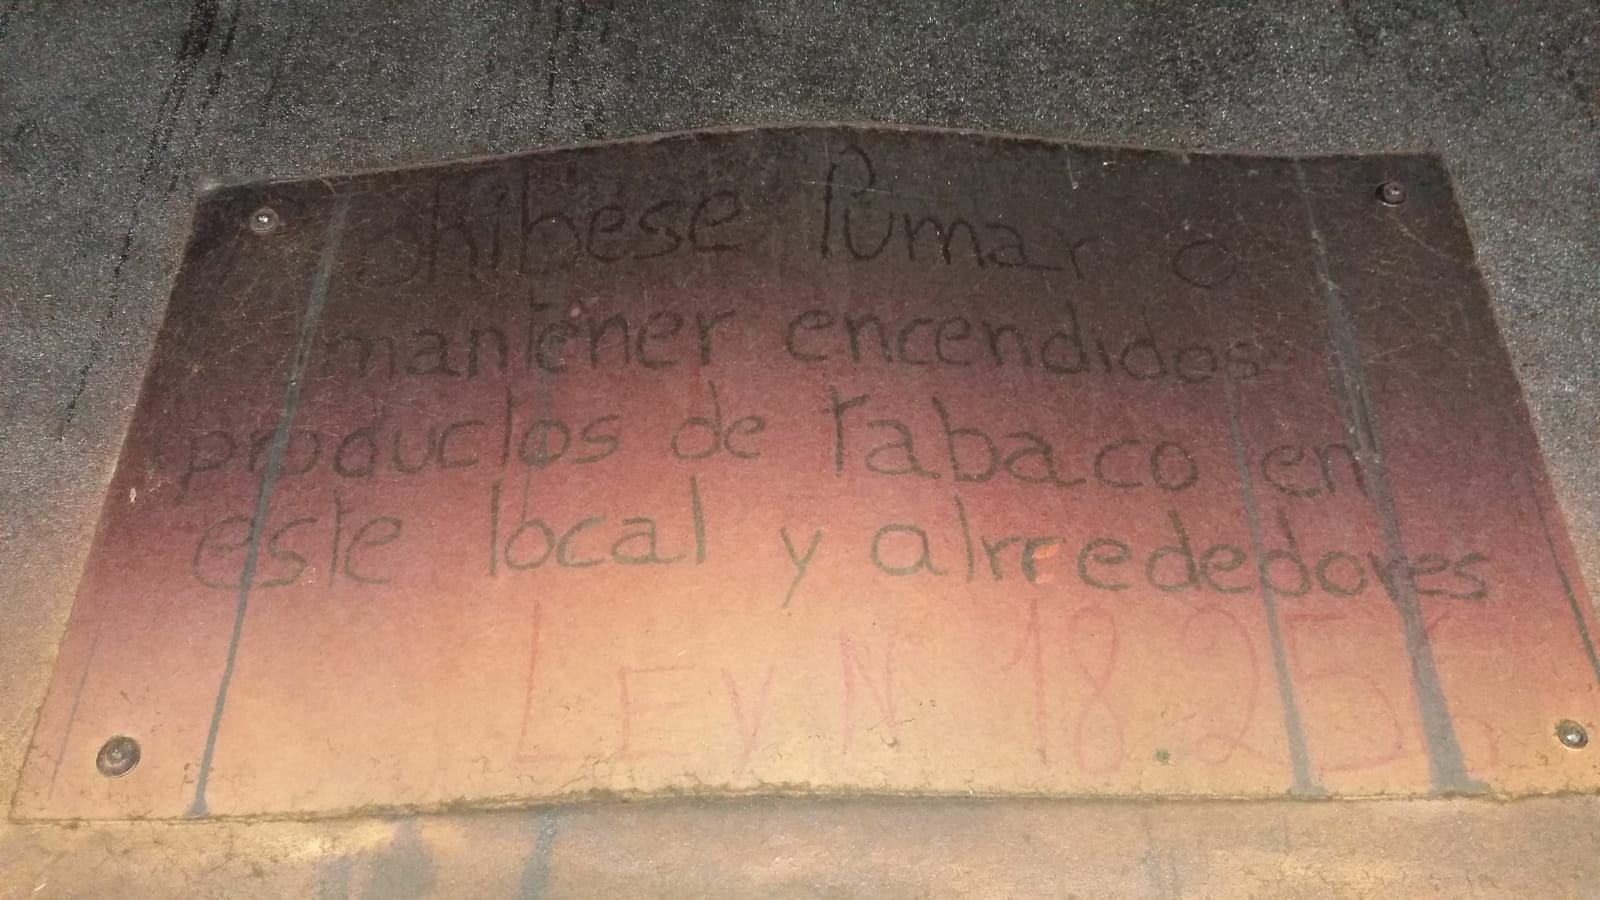 ohibese fumar o
mantener encendidos
productos de tabaco en
este local y alrrededores
LEY N° 18.256